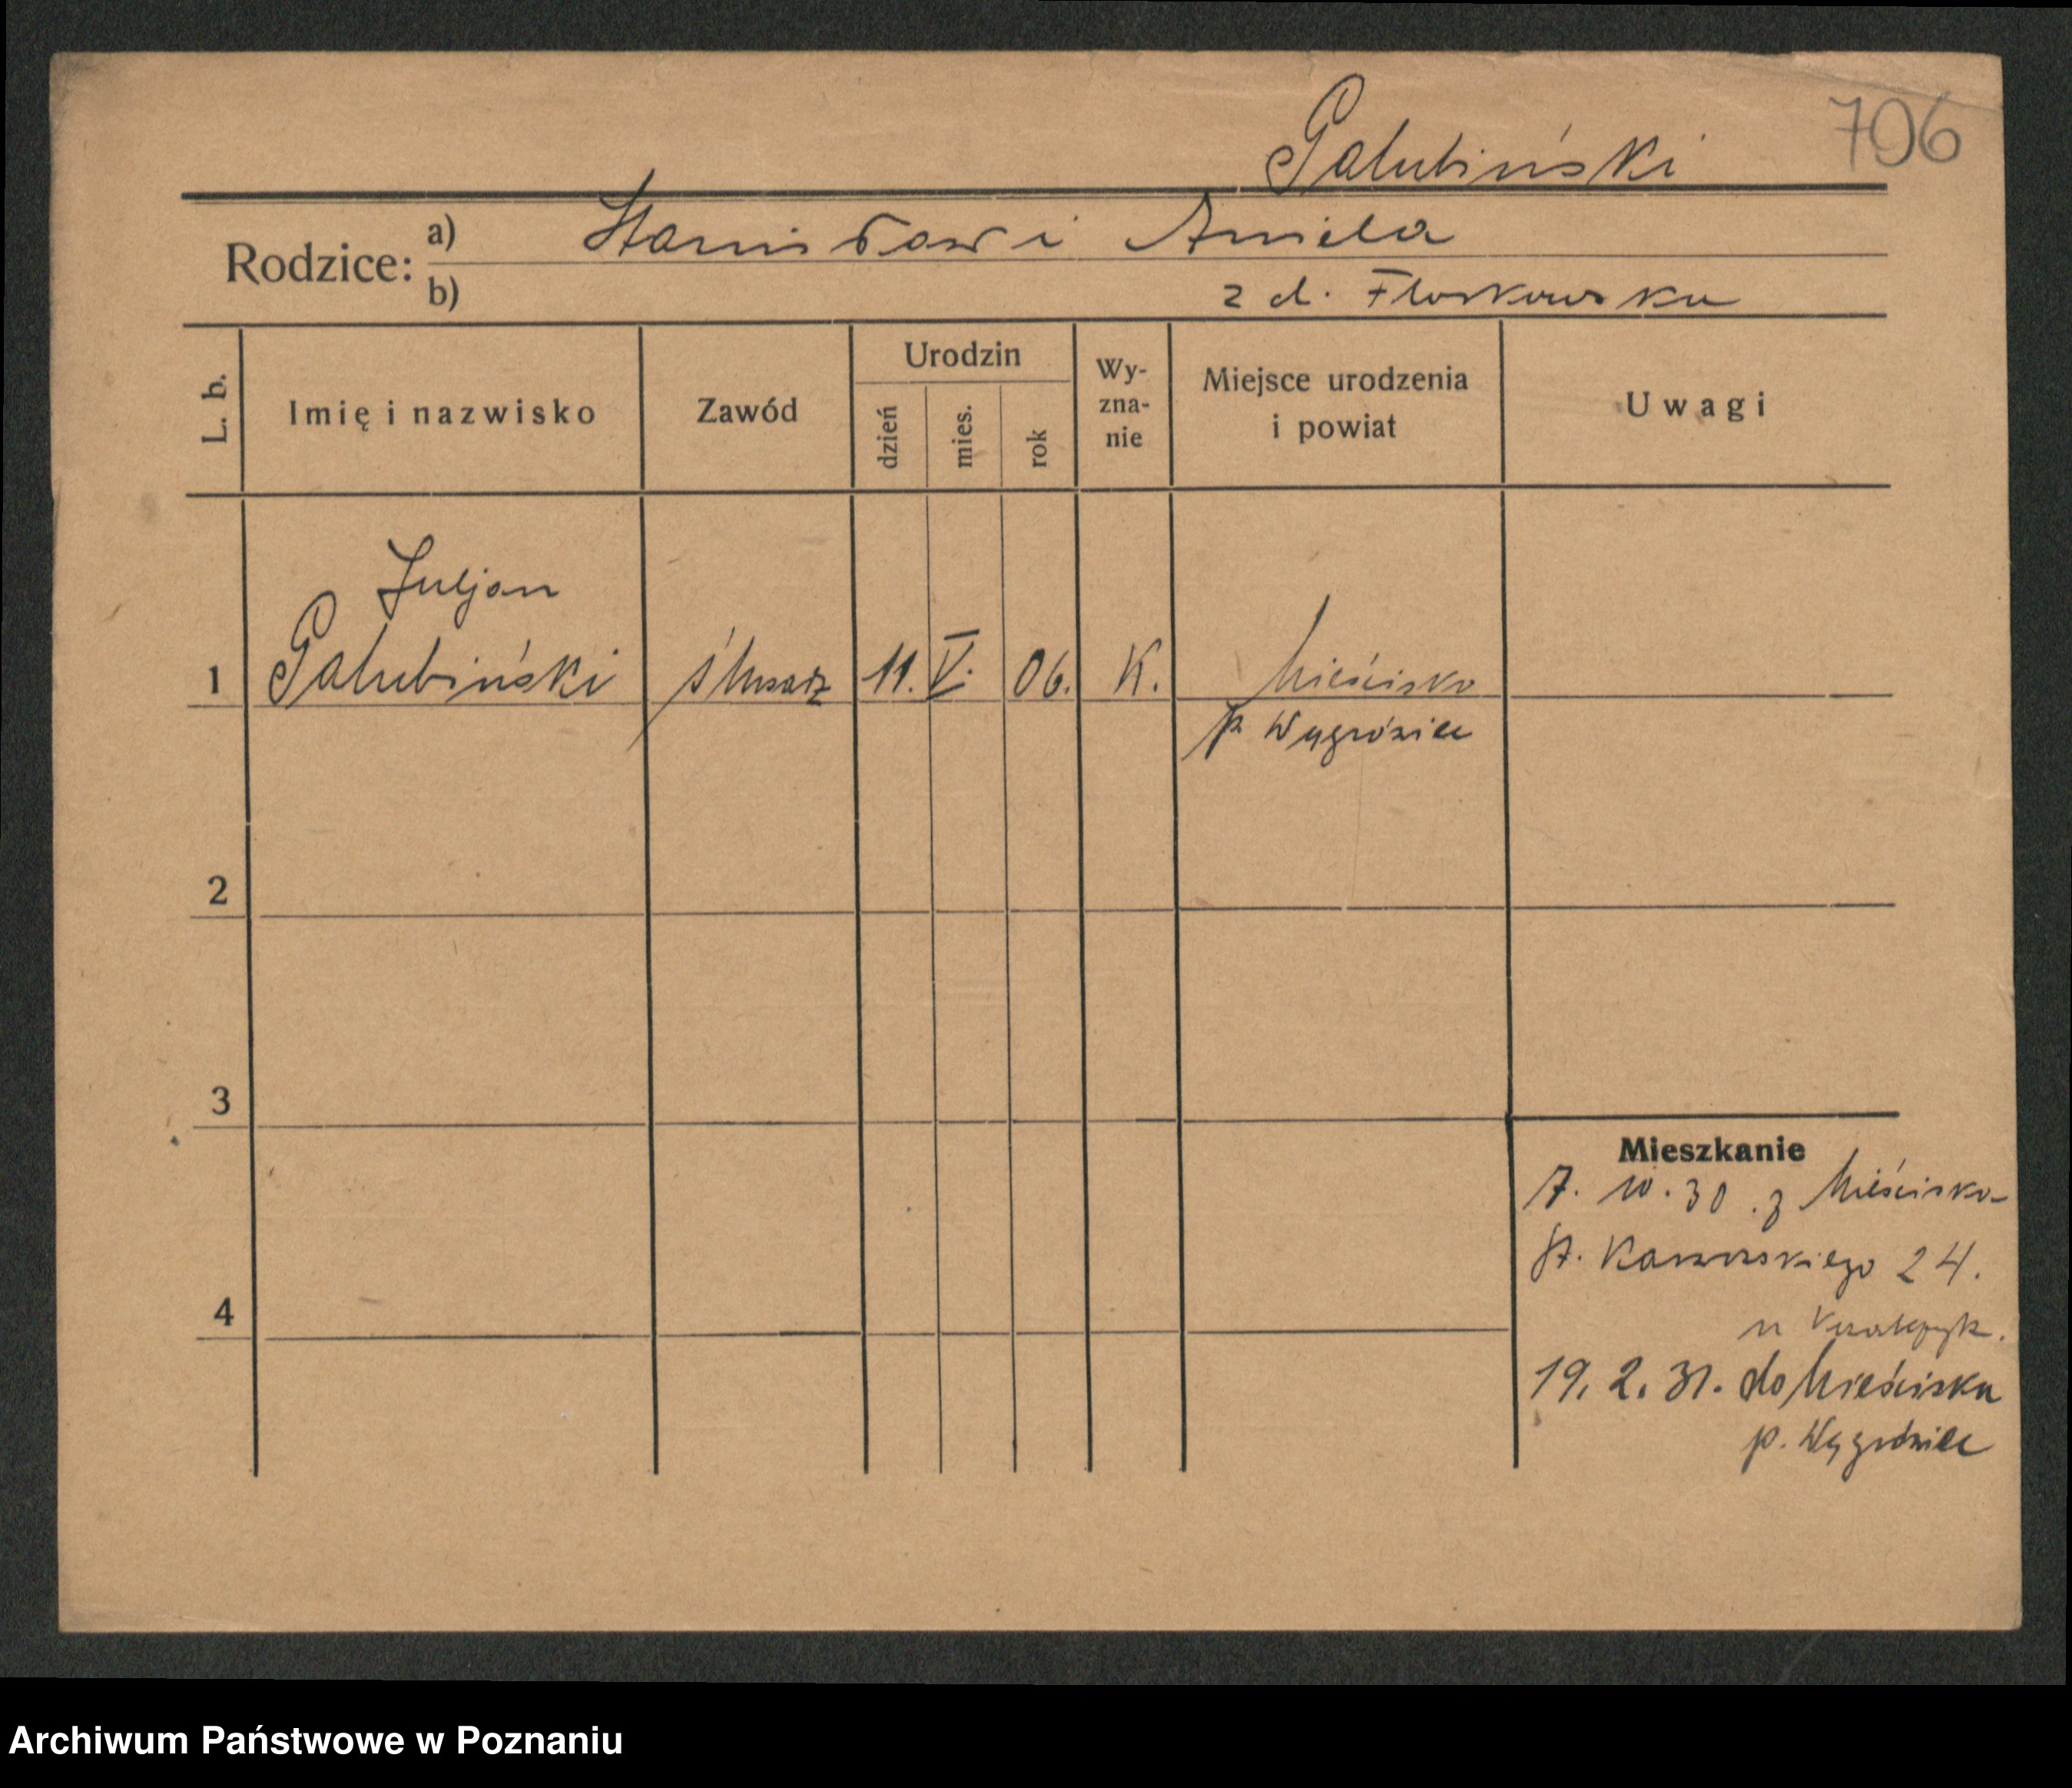 706
Gałubiński
Rodzice: a) Stanisław i Aniela
b) z d. Floskowska
L. b.
Imię i nazwisko
Zawód
Urodzin
dzień
mies.
rok
Wy-
zna-
nie
Miejsce urodzenia
i powiat
Uwagi
Juljan
1 Gałubiński ślusarz 11. V. 06. K. Mieścisko
p. Wągrówiec
2
3
4
Mieszkanie
7. 10. 30. z Mieściska
St. 24.
u
19. 2. 31. do Mieściska
p. Wągrówiec
Archiwum Państwowe w Poznaniu